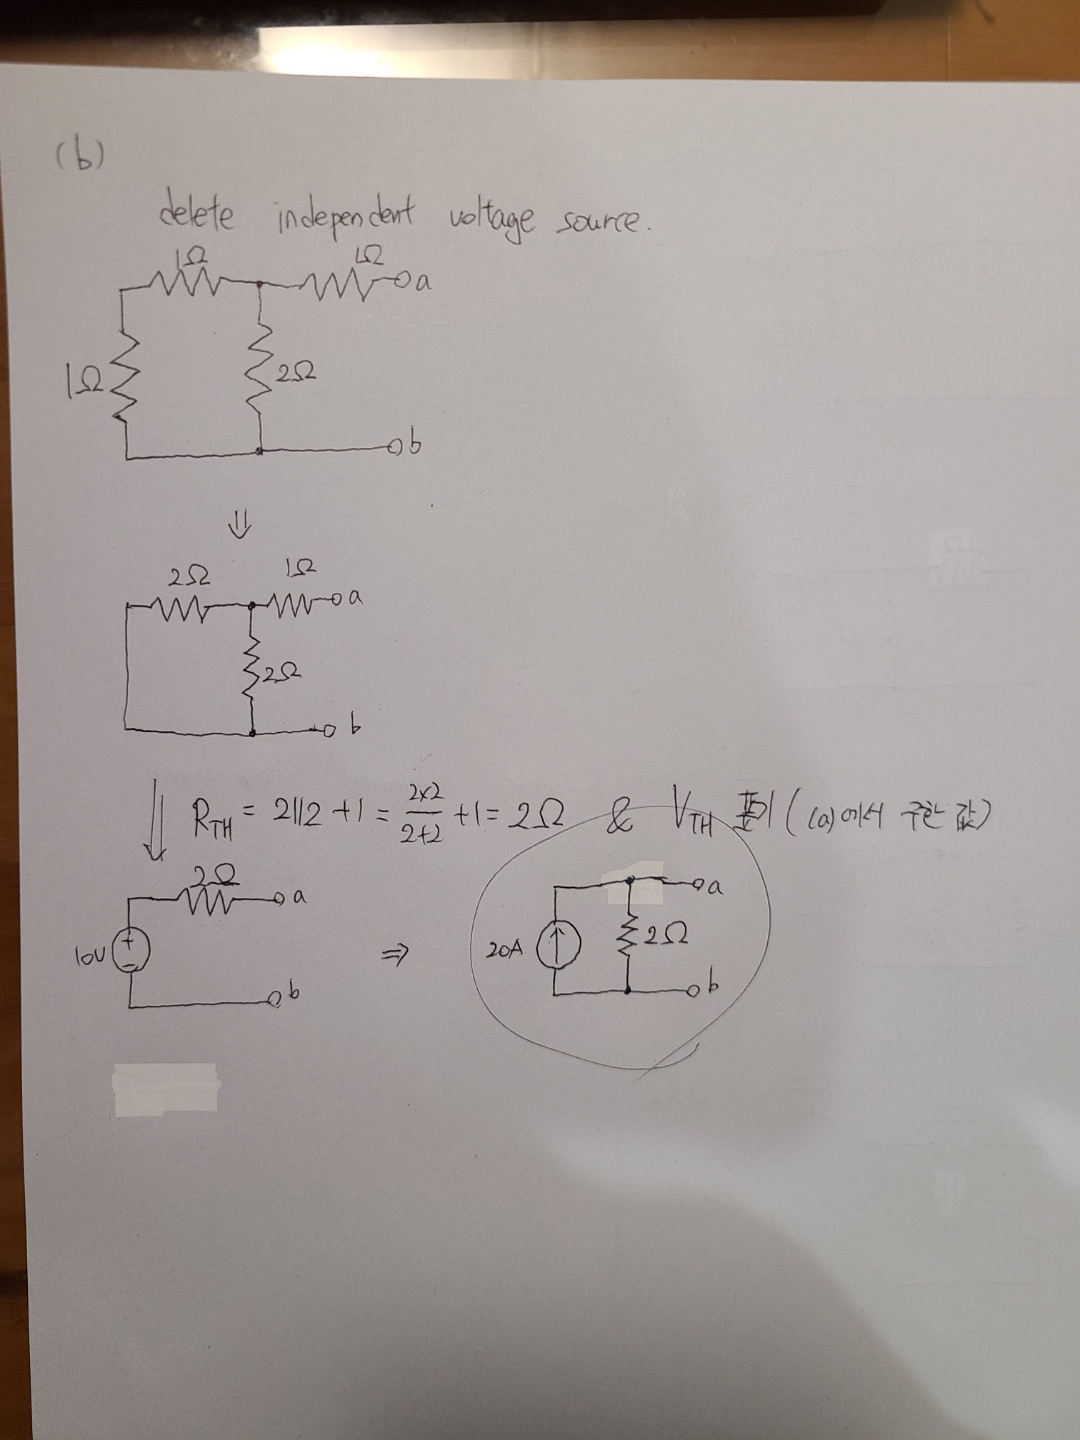 (b)
delete independent voltage source.
1Ω 1Ω a
1Ω 2Ω
b
⇓
2Ω 1Ω a
2Ω
b
⇓ R_TH = 2||2 + 1 = 2×2/2+2 + 1 = 2Ω & V_TH 표기 ( (a)에서 구한 값)
2Ω a
10V + −
b
⇒
20A 2Ω a
b